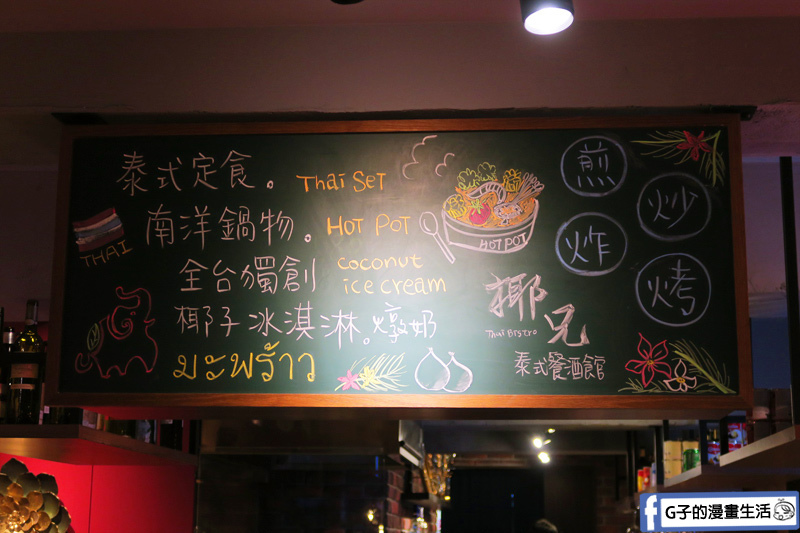 泰式定食。 Thai Set
南洋鍋物。 HOT POT
全台獨創 coconut
ice cream
椰子冰淇淋。燉奶
มะพร้าว
THAI
HOT POT
煎
炒
炸
烤
椰兄
Thai Bistro
泰式餐酒館
G子的漫畫生活